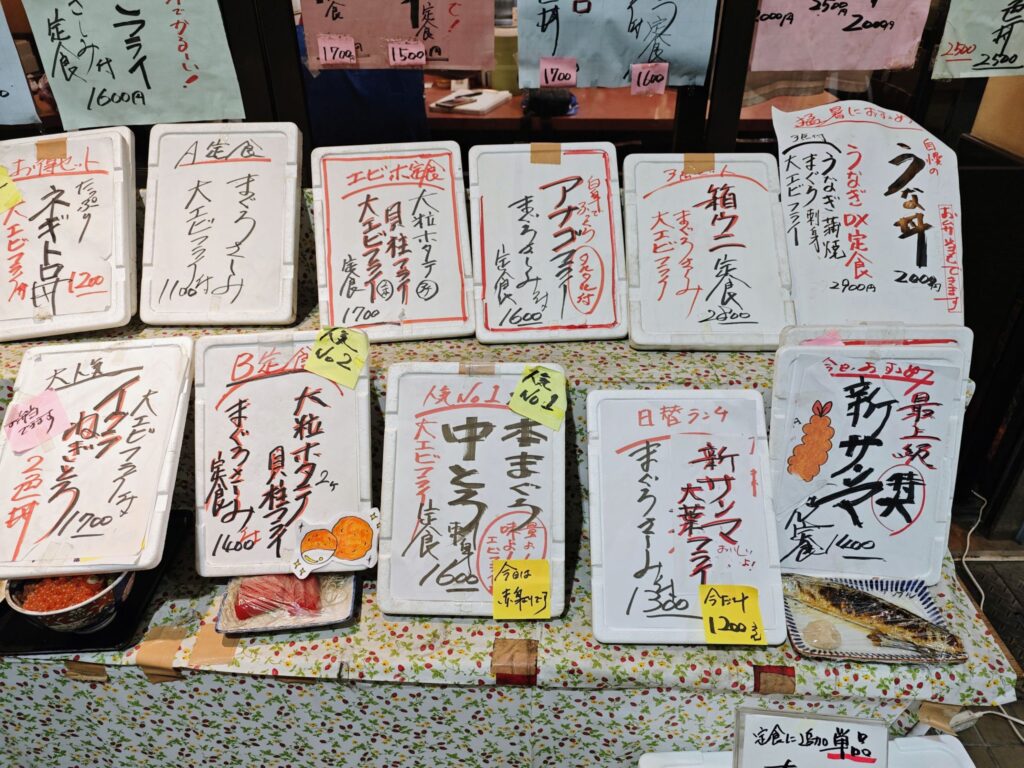 さしみ付
定食
フライ
1600円
でかるーい!
1700
定食
1500
定食
1700
1600
2500円
2000円
2500
2500
お得セット
たっぷり
ネギトロ丼
大エビフライ付
1200
A定食
まぐろさしみ
大エビフライ付
1100
エビホ定食
大粒ホタテ
貝柱フライ
大エビフライ
定食
1700
アナゴフライ
タルタル付
まぐろさしみ付
定食
1600
箱ウニ定食
まぐろさしみ
大エビフライ
2800
猛暑におすすめ
自慢の
うな丼
2000円
お弁当もできます
うなぎDX定食
うなぎ蒲焼
まぐろ刺身
大エビフライ
2900円
大人気
大エビフライ付
イクラ
ねぎとろ
2色丼
1700
B定食
人気
No2
大粒ホタテ
2ヶ
貝柱フライ
まぐろさしみ付
定食
1400
人気No.1
人気
No1
本まぐろ
中とろ刺身
大エビフライ
定食
1600
今日は
日替ランチ
新サンマ
大葉フライ
おいしいよ!
まぐろさしみ付
1300
今だけ
1200
今日のおすすめ
最上級
新サンマ
焼
定食
1400
定食に追加単品